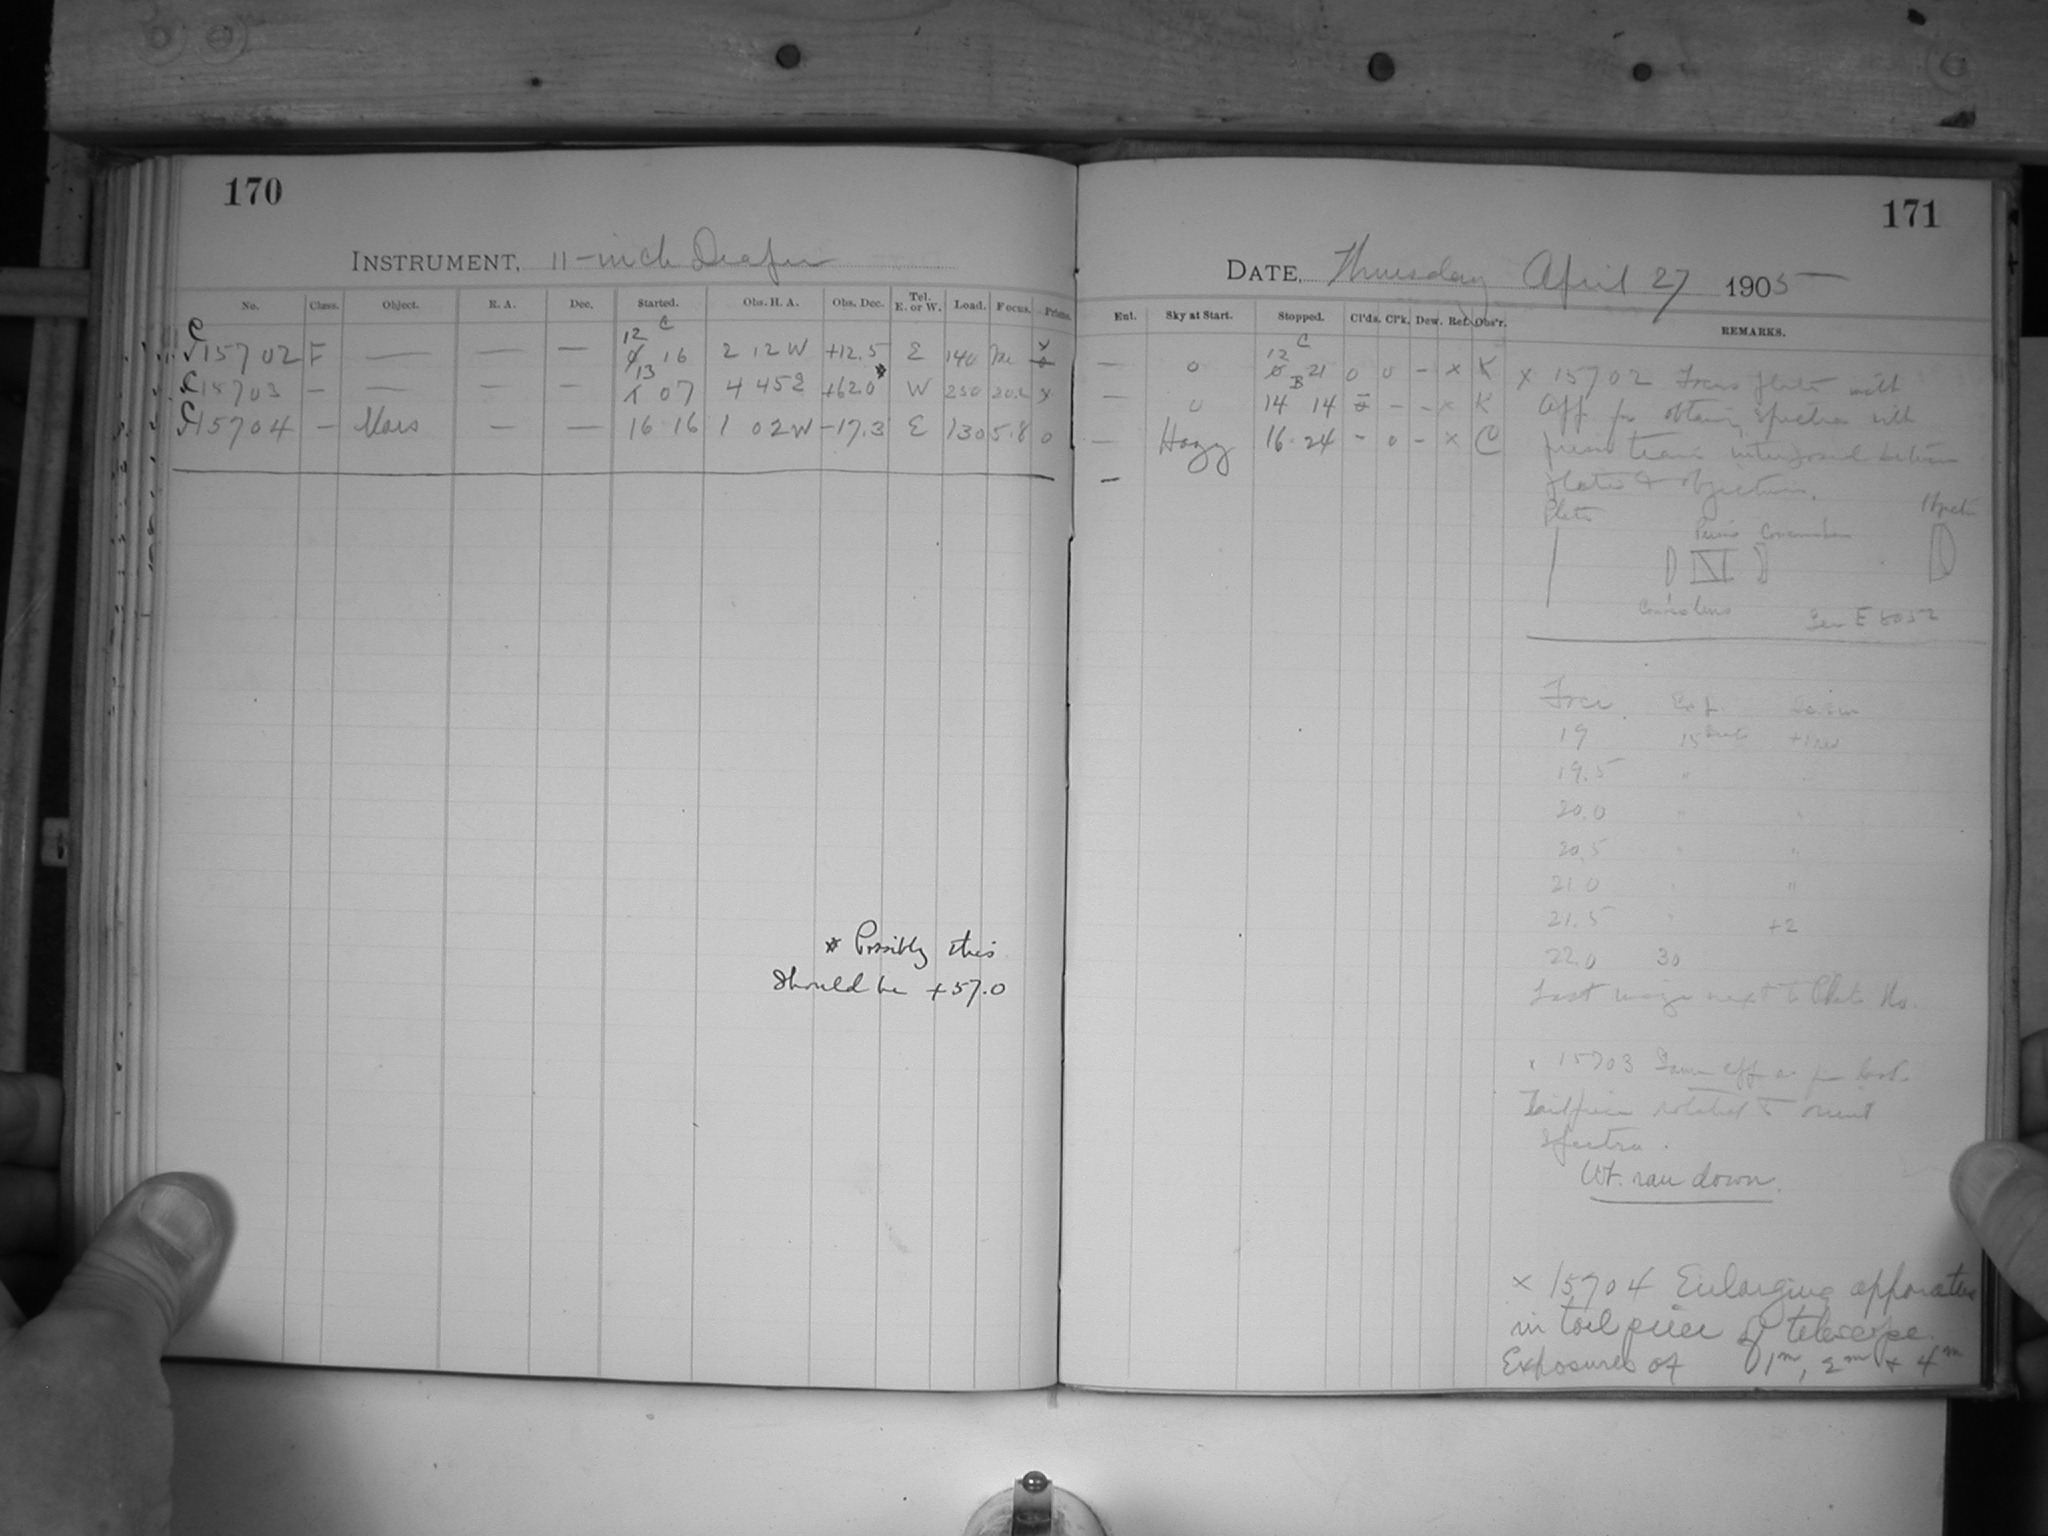 170
INSTRUMENT, 11-inch Draper
No. Class. Object. R. A. Dec. Started. Obs. H. A. Obs. Dec. Tel. E. or W. Load. Focus. Prisms.
C 12 C
15702 F — — — 16 2 12 W +12.5 E 140 x
C 13
15703 — — — — 07 4 452 +62.0* W 250 20.2 x
C15704 — Mars — — 16 16 1 02 W -17.3 E 130 5.8 0
* Possibly this
should be +57.0
171
DATE, Thursday April 27 1905
Ent. Sky at Start. Stopped. Cl'ds. Cl'k. Dew. Ref. Obs'r. REMARKS.
— 0 12 C 21 0 0 - x K
— 0 14 14 - - x K
— Hazy 16 24 - 0 - x C
—
x 15702 Focus plate with
App. for obtaining spectra with
prism train interposed between
plate & objective.
Plate
Prism
lens
See E 8052
Exp.
19 15
19.5 "
20.0 " "
20.5 " "
21.0 " "
21.5 " +2
22.0 30
Last image next to Plate No.
x 15703 Same app as for last
Tailpiece rotated to orient
spectra.
Wt. ran down.
x 15704 Enlarging apparatus
in tail piece of telescope.
Exposures of 1m, 2m & 4m